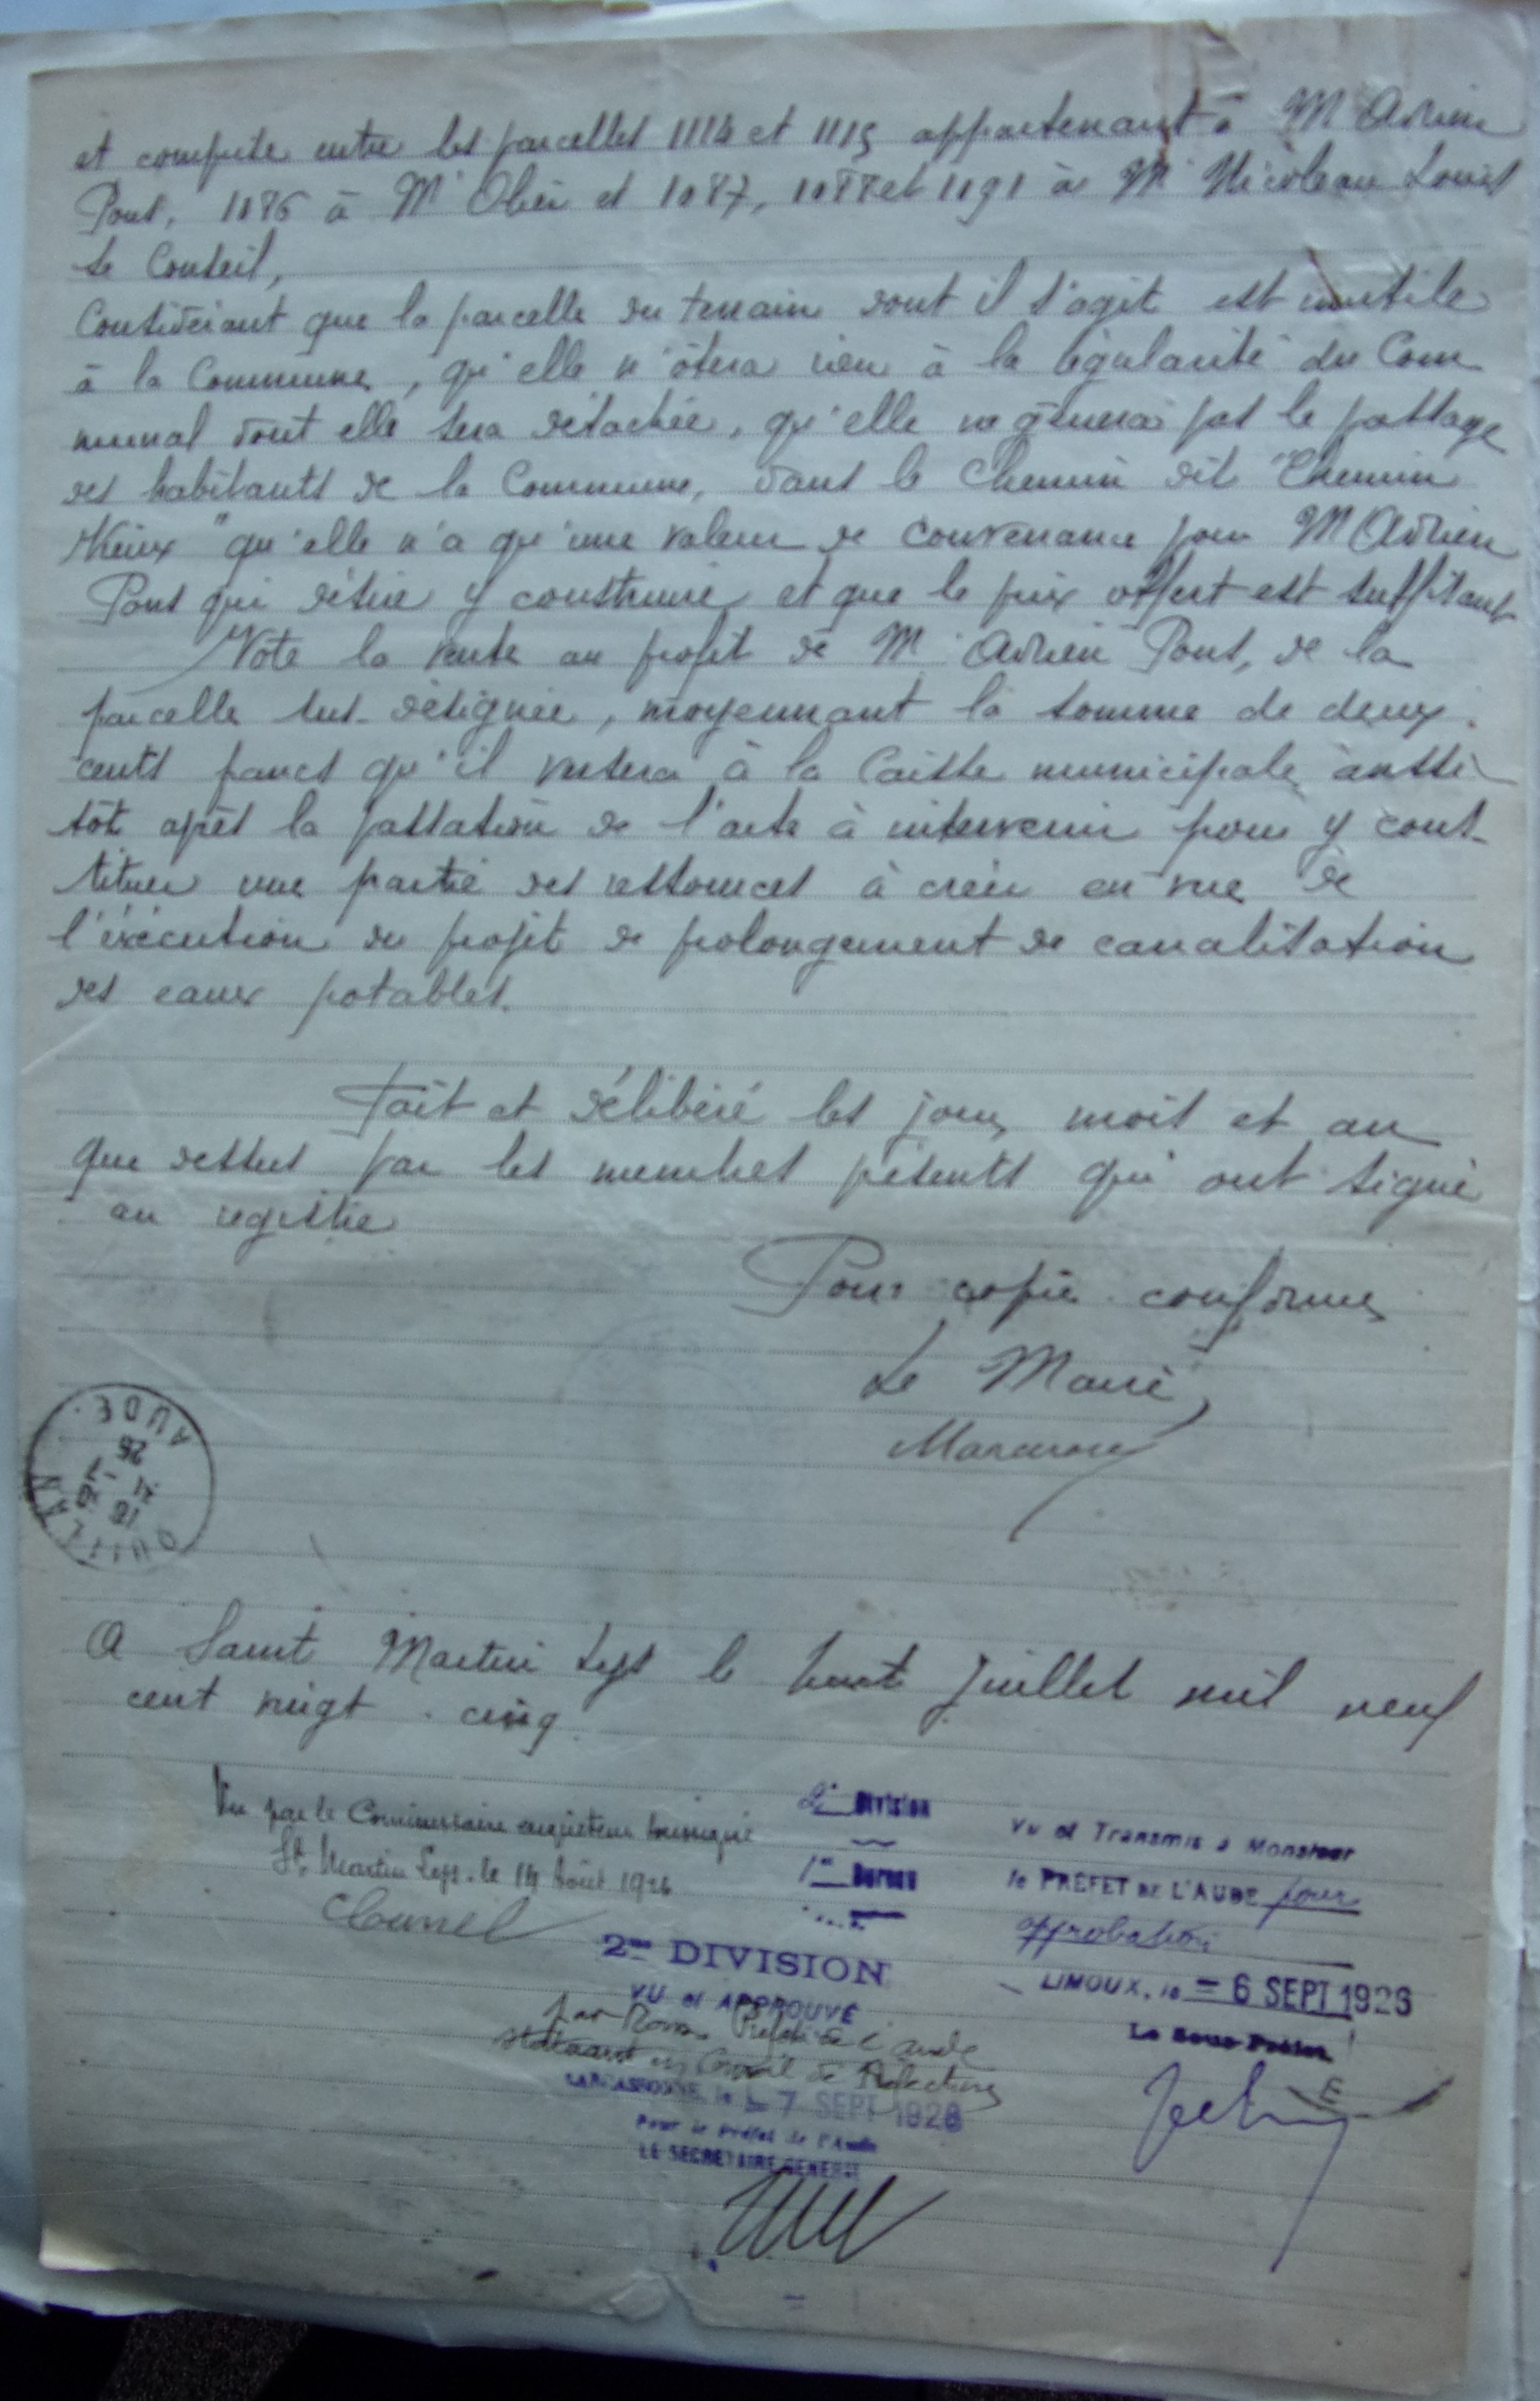 et comprise entre les parcelles 1114 et 1115 appartenant à M Adrien
Pons, 1186 à Mr Olier et 1087, 1088 et 1191 à Mr Nicoleau Louis
Le Conseil,
Considérant que la parcelle du terrain dont il s'agit est inutile
à la Commune, qu'elle n'ôtera rien à la régularité du Com
munal dont elle sera détachée, qu'elle ne gênera pas le passage
des habitants de la Commune, dans le chemin dit "Chemin
Vieux" qu'elle n'a qu'une valeur de convenance pour M Adrien
Pons qui désire y construire et que le prix offert est suffisant
Vote la vente au profit de M Adrien Pons, de la
parcelle sus-désignée, moyennant la somme de deux
cents francs qu'il versera à la Caisse municipale aussi
tôt après la passation de l'acte à intervenir pour y cons-
tituer une partie des ressources à créer en vue de
l'exécution du projet de prolongement de canalisation
des eaux potables.
Fait et délibéré les jour, mois et an
que dessus par les membres présents qui ont signé
au registre
Pour copie conforme
Le Maire,
QUILLAN
AUDE
A Saint Martin Lys le huit Juillet mil neuf
cent vingt-cinq
Vu par le Commissaire enquêteur soussigné
St Martin Lys. le 14 Août 1926
2e Division
1er Bureau
Vu et Transmis à Monsieur
le PREFET DE L'AUDE pour
approbation
LIMOUX, le = 6 SEPT 1926
Le Sous-Préfet
2me DIVISION
VU et APPROUVÉ
par Nous Préfet de l'Aude
statuant en Conseil de Préfecture
CARCASSONNE, le 7 SEPT 1926
Pour le Préfet de l'Aude
LE SECRETAIRE GENERAL